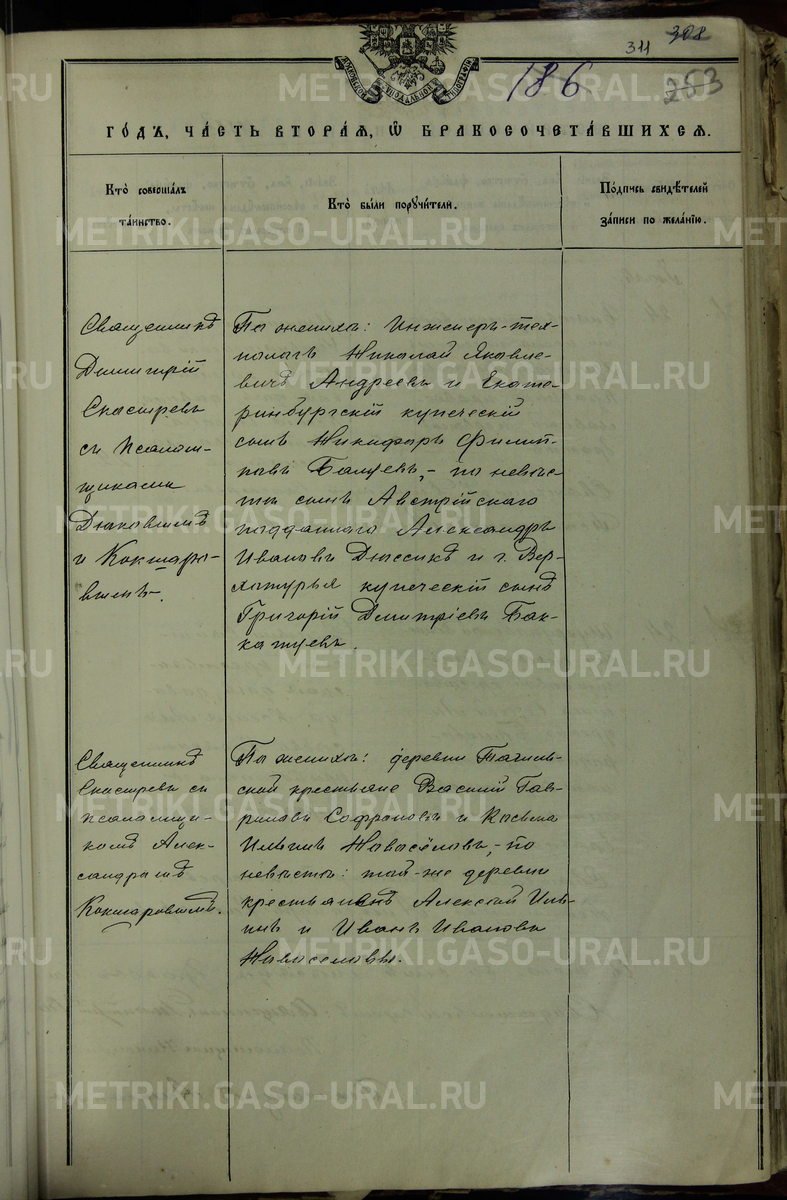 311 308
186 253
МОСКОВСКОЙ СѴНОДАЛЬНОЙ ТИПОГРАФІИ
ГО́ДЪ, ЧА́СТЬ ВТОРА́Я, Ѽ БРАКОСОЧЕТА́ВШИХСЯ.
Кто̀ соверша́лъ
та́инство.
Кто̀ бы́ли поручи́тели.
По́дпись свидѣ́телей
за́писи по жела́нїю.
Священникъ
Димитрій
Снастревъ
съ псалом-
щиками
Дьяковымъ
и Кокшаро-
вымъ.
По женихѣ: Инженеръ-тех-
нологъ Николай Яковле-
вичъ Андреевъ и Екате-
ринбургскій купеческій
сынъ Никифоръ Филип-
повъ Балуевъ, - по невѣс-
тѣ сынъ Австрійскаго
подданнаго Александръ
Ивановъ Дюссикъ и г. Вер-
хотурья купеческій сынъ
Григорій Димитріевъ
Священникъ
Снастревъ съ
псаломщи-
комъ Алек-
сандромъ
Кокшаровымъ.
По женихѣ: деревни Тагиль-
ской крестьяне Василій Гав-
риловъ Софроновъ и Косьма
Ильинъ Новосёловъ, - по
невѣстѣ: той-же деревни
крестьянъ Алексѣй Иль-
инъ и Иванъ Ивановъ
Новоселовы.
METRIKI.GASO-URAL.RU